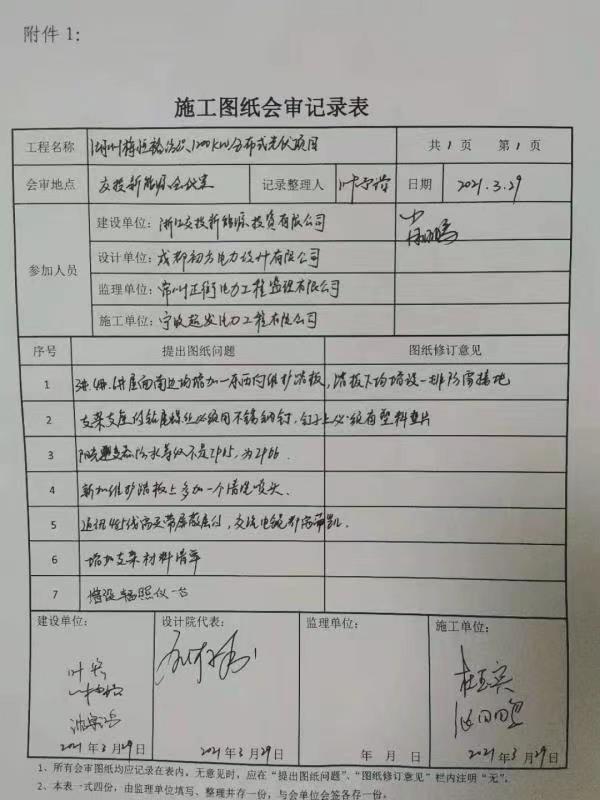 附件 1:
施工图纸会审记录表
工程名称 1200KW分布式光伏项目 共 1 页 第 1 页
会审地点 交投新能源会议室 记录整理人 日期 2021.3.29
参加人员
建设单位: 浙江交投新能源投资有限公司
设计单位: 成都 电力设计有限公司
监理单位: 常州正衡电力工程监理有限公司
施工单位: 宁波 电力工程有限公司
序号 提出图纸问题 图纸修订意见
1 屋面南边均增加一条东西向维护踏板,踏板下均增设一排防雷接地
2 支架支座 必须用不锈钢钉,钉子上必须有塑料垫片
3 防水等级不是IP65,为IP66.
4 新加维护踏板上多加一个清洗喷头.
5 通讯485线 带屏蔽层的,交流电缆
6 增加支架材料清单
7 增设辐照仪一台
建设单位: 设计院代表: 监理单位: 施工单位:
2021年3月29日 2021年3月29日 年 月 日 2021年3月29日
1、所有会审图纸均应记录在表内,无意见时,应在“提出图纸问题”、“图纸修订意见”栏内注明“无”。
2、本表一式四份,由监理单位填写、整理并存一份,与会单位会签各存一份。